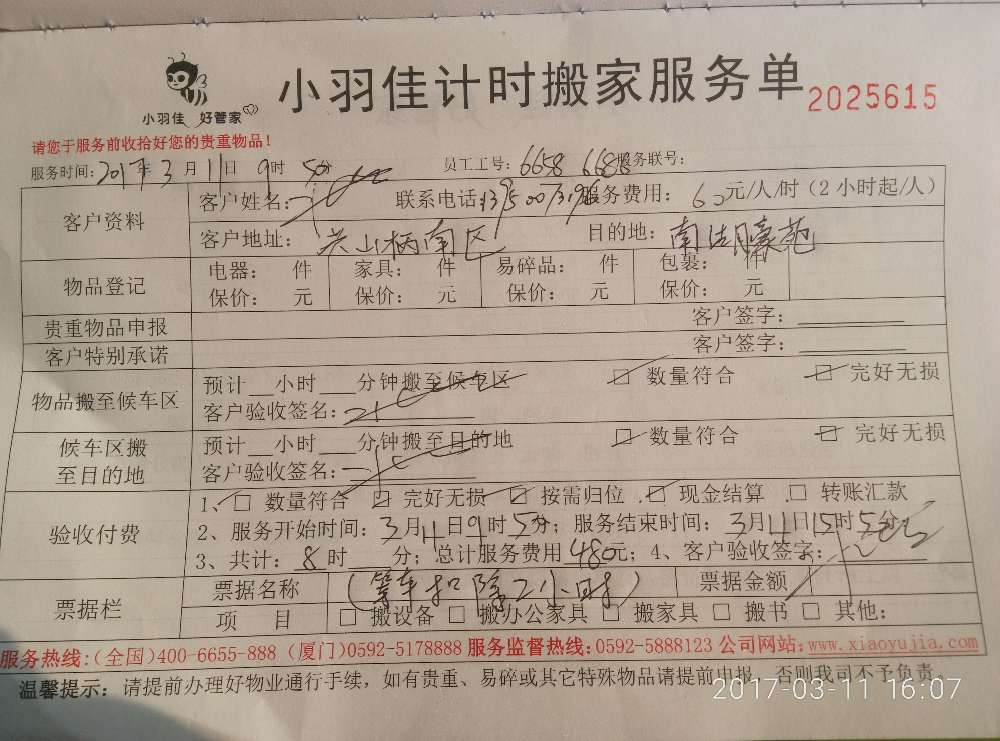 小羽佳计时搬家服务单
2025615
小羽佳 好管家
请您于服务前收拾好您的贵重物品!
服务时间: 2017年3月11日9时5分 员工工号: 6658 6688 服务联号:
客户资料 客户姓名: 联系电话: 服务费用: 60元/人/时(2小时起/人)
客户地址: 南区 目的地: 南湖豪苑
物品登记 电器: 件 家具: 件 易碎品: 件 包裹: 件
保价: 元 保价: 元 保价: 元 保价: 元
贵重物品申报 客户签字:
客户特别承诺 客户签字:
物品搬至候车区 预计__小时___分钟搬至候车区 □ 数量符合 □ 完好无损
客户验收签名:
候车区搬至目的地 预计__小时___分钟搬至目的地 □ 数量符合 □ 完好无损
客户验收签名:
验收付费 1、□ 数量符合 □ 完好无损 □ 按需归位 □ 现金结算 □ 转账汇款
2、服务开始时间: 3月11日9时5分; 服务结束时间: 3月11日15时5分
3、共计: 8时___分; 总计服务费用480元; 4、客户验收签字:
票据栏 票据名称 (等车扣除2小时) 票据金额
项 目 □ 搬设备 □ 搬办公家具 □ 搬家具 □ 搬书 □ 其他:
服务热线:(全国)400-6655-888 (厦门)0592-5178888 服务监督热线:0592-5888123 公司网站:www.xiaoyujia.com
温馨提示: 请提前办理好物业通行手续, 如有贵重、易碎或其它特殊物品请提前申报, 否则我司不予负责。
2017-03-11 16:07